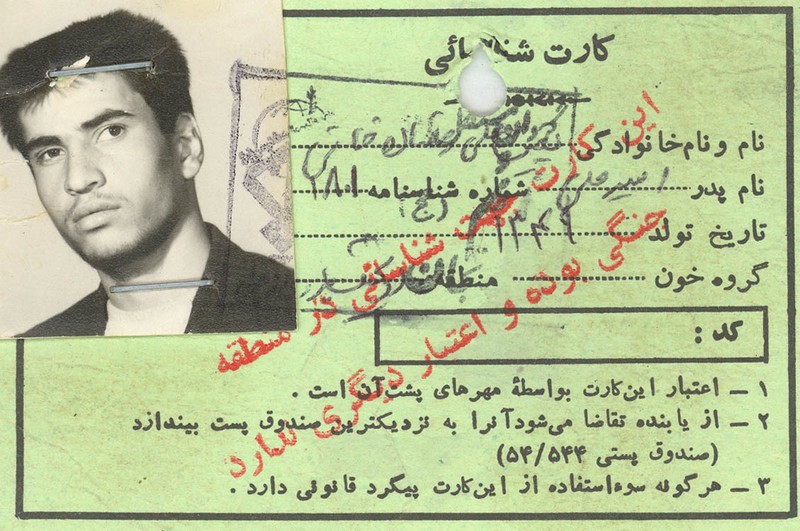 کارت شناسائی
نام و نام خانوادگی
نام پدر امیر علی شماره شناسنامه ۱۸۱
تاریخ تولد ۱۳۴۹
گروه خون منطقه
کد :
۱ ـ اعتبار این کارت بواسطهٔ مهرهای پشت آن است .
۲ ـ از یابنده تقاضا می‌شود آنرا به نزدیکترین صندوق پست بیندازد
(صندوق پستی ۵۴/۵۴۴)
۳ ـ هرگونه سوءاستفاده از این کارت پیگرد قانونی دارد .
این کارت جهت شناسائی در منطقه
جنگی بوده و اعتبار دیگری ندارد